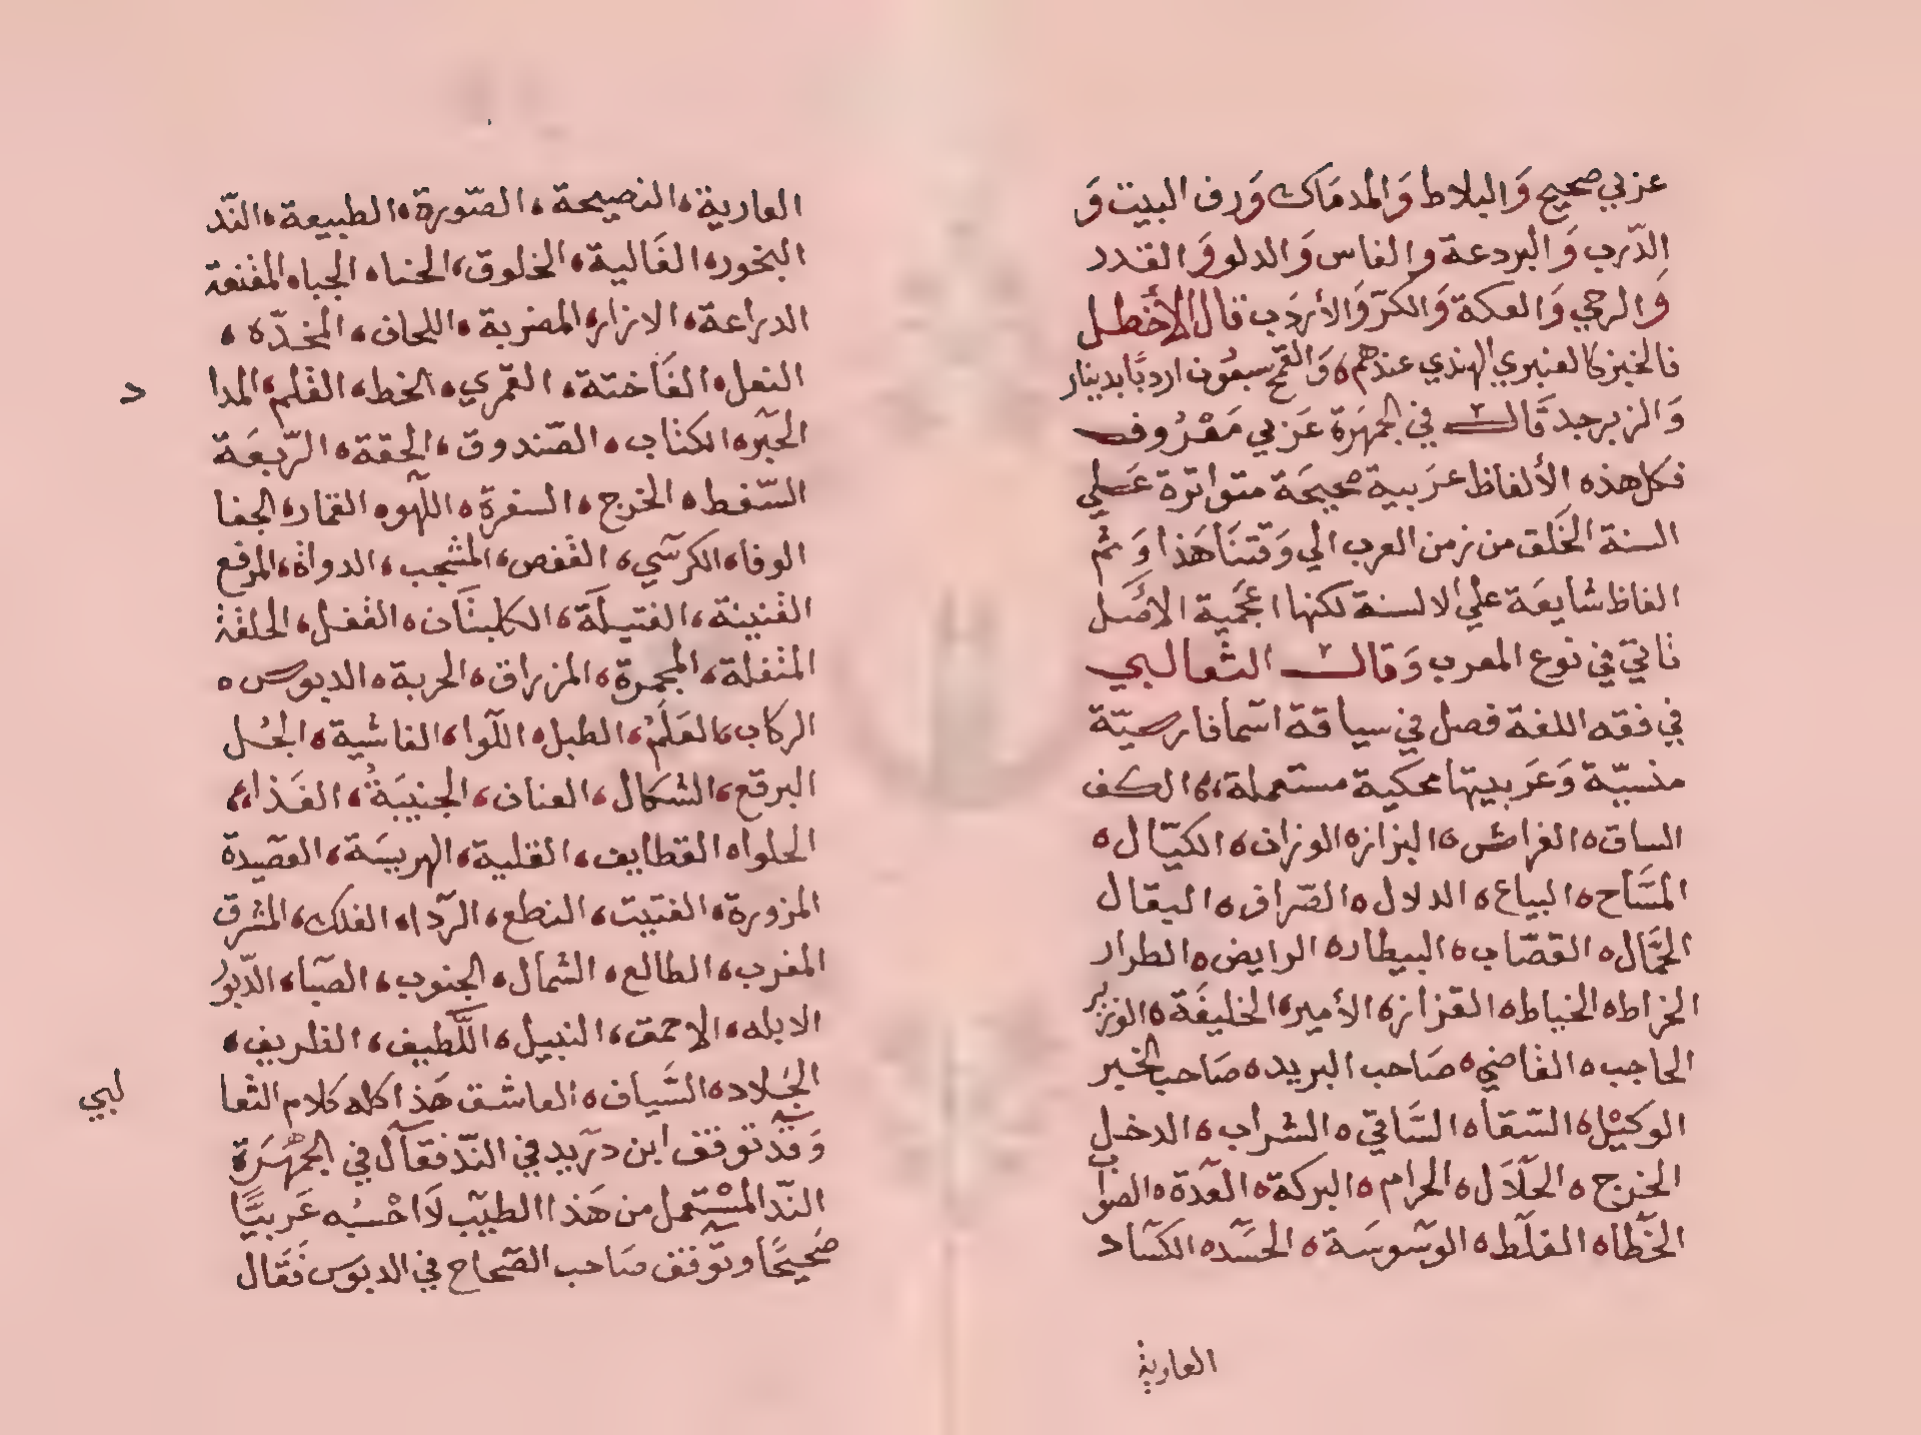 عربي صحيح وَالبلاط وَالمدمَاك وَرف البيت وَ
الدّرب وَالبردعة والفاس وَالدلو وَالقدد
وَالرحي وَالعكة وَالكرّ وَالأردَب قال الأخطل
فالخبز كالعنبري الهندي عندهم ٥ وَالقمح سبعُون اردبًا بدينار
وَالزبرجد قَال في الجمهَرة عَربي مَعْرُوف
فكل هذه الألفاظ عرَبية صحيحَة متواترة عَلي
السنة الخَلق من زمن العرب الي وَقتنَا هَذا وَثم
الفاظ شايعَة علي الالسنة لكنها اعجَمية الأصَل
تاتي في نوع المعرب وَقال الثعالبي
في فقه اللغة فصل في سياقة اسّما فارسيّة
منسيّة وَعَربيتها محكية مستعملة، ٥ الكف
الساق ٥ الفراش ٥ البزاز ٥ الوزان ٥ الكيّال ٥
المسَّاح ٥ البياع ٥ الدلال ٥ الصّراف ٥ البقال
الجمَّال ٥ القصّاب ٥ البيطار ٥ الرايض ٥ الطرار
الخراط ٥ الخياط ٥ القزاز ٥ الأمير ٥ الخليفَة ٥ الوزير
الحاجب ٥ القاضي ٥ صَاحب البريد ٥ صَاحب الخبر
الوكيْل ٥ السّقا ٥ السَّاقي ٥ الشراب ٥ الدخل
الخرج ٥ الحَلَال ٥ الحرام ٥ البركة ٥ العدة ٥ الصواب
الخطا ٥ الغلَط ٥ الوسّوسَة ٥ الحسَد ٥ الكسَاد
العارية
العارية، النصيحة، الصّورة، الطبيعة، النّد
البخور، الغَالية، الخلوق، الحنا، الجبا، المقنعة
الدراعة، الازار، المضربة، اللحاف، المخدّة ،
النعل، الفَاختة، القمّري، الخط، القلم، المدا
د
الحبّر، الكتاب، الصّندوق، الحقة، الرّبعَة
السّفط، الخرج، السفرة، اللهو، القمار، الجفا
الوفا، الكرسّي، القفص، المشجب، الدواة، المرفع
القنينة، الفتيلَة، الكلبتَان، القفل، الحلقة
المنقلة، المجمرة، المزراق، الحربة، الدبوس ٥
الركاب، العَلَمُ، الطبل، اللّوا، الغاشية، الجُل
البرقع، الشكال، العنان، الجنيبَةُ، الغَذا،،
الحلوا، القطايف، القلية، الهريسَة، العصّيدة
المزورة، الفتيت، النطع، الرّدا، الفلك، المشرق
المغرب، الطالع، الشمال، الجنوب، الصّبا، الدّبور
الابله، الاحمق، النبيل، اللَّطيف، الظريف،
الجَلاد، السَّياف، العاشق هَذا كله كلام الثعا
لبي
وَقدّ توقف ابن دريد في النّد فقاّل في الجمْهَرة
النّد المسْتعمل من هَذا الطيّب لَا احْسبُه عَربيًّا
صَحيحًا وتوّقف صَاحب الصّحاح في الدبوَس فَقَال